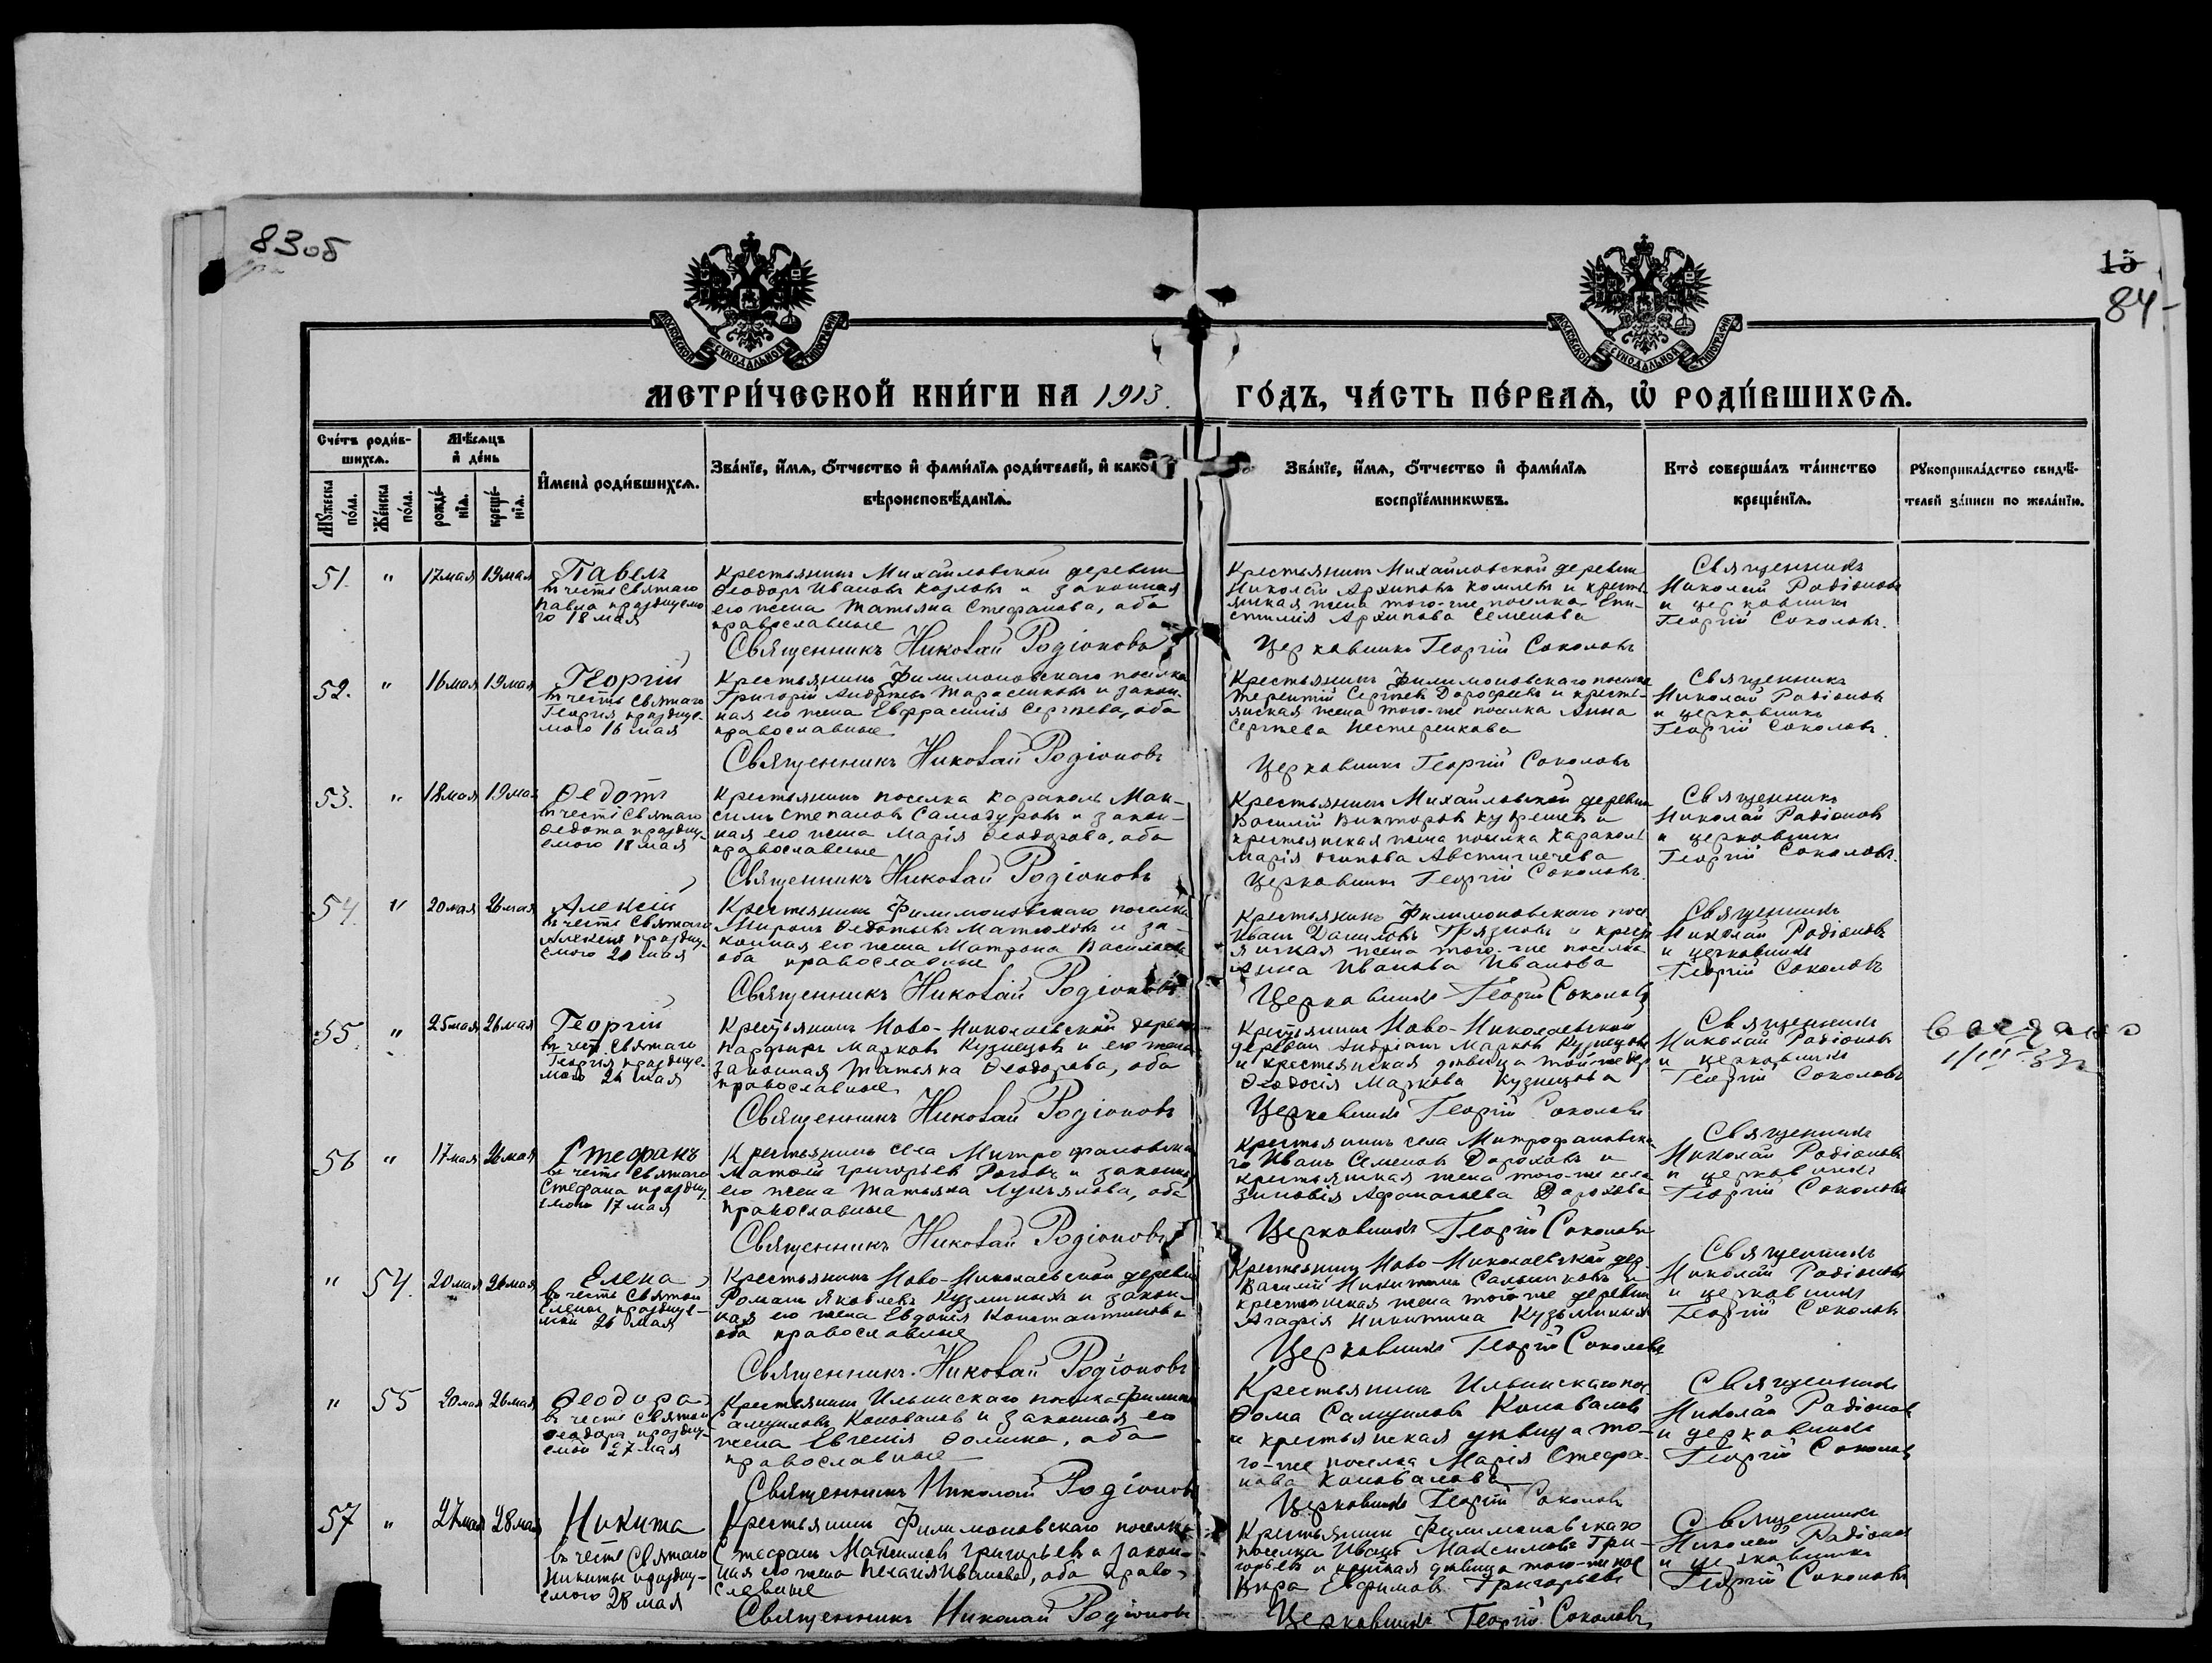 83об
15
84
МОСКОВСКОЙ СѴНОДАЛЬНОЙ ТИПОГРАФІИ
МОСКОВСКОЙ СѴНОДАЛЬНОЙ ТИПОГРАФІИ
МЕТРИ́ЧЕСКОЙ КНИ́ГИ НА 1913. ГО́ДЪ, ЧА́СТЬ ПЕ́РВАѦ, Ѡ҆ РОДИ́ВШИХСѦ.
Сче́тъ роди́в-
шихсѧ.
Мꙋ́жеска по́ла.
Же́нска по́ла.
Мѣ́сѧцъ
и҆ де́нь
рожде́-
нїѧ.
креще́-
нїѧ.
И҆мена̀ роди́вшихсѧ.
Зва́нїе, и҆́мѧ, ѻ҆́тчество и҆ фами́лїѧ роди́телей, и҆ како́й
вѣроисповѣ́данїѧ.
Зва́нїе, и҆́мѧ, ѻ҆́тчество и҆ фами́лїѧ
воспрїе́мникѡвъ.
Кто̀ соверша́лъ та́инство
креще́нїѧ.
Рꙋкоприкла́дство свидѣ́-
телей за́писи по жела́нїю.
51. " 17 мая 19 мая
Павелъ
въ честь Святаго
Павла празднуемо
го 18 мая
Крестьянинъ Михайловской деревни
Ѳеодоръ Ивановъ Козловъ и законная
его жена Татьяна Стефанова, оба
православные
Священникъ Николай Родіоновъ
Крестьянинъ Михайловской деревни
Николай Архиповъ Комлевъ и кресть
янская жена того-же поселка Епи-
стимія Архипова Семенова
Церковникъ Георгій Соколовъ
Священникъ
Николай Родіоновъ
и церковникъ
Георгій Соколовъ.
52. " 16 мая 19 мая
Георгій
въ честь Святаго
Георгія празднуе-
маго 16 мая
Крестьянинъ Филимоновскаго поселка
Григорій Андреевъ Тарасенковъ и закон-
ная его жена Евфрасинія Сергѣева, оба
православные
Священникъ Николай Родіоновъ
Крестьянинъ Филимоновскаго поселка
Терентій Сергѣевъ Дорофеевъ и кресть-
янская жена того-же поселка Анна
Сергѣева Нестеренкова
Церковникъ Георгій Соколовъ
Священникъ
Николай Родіоновъ
и церковникъ
Георгій Соколовъ.
53. " 18 мая 19 мая
Ѳедотъ
въ честь Святаго
Ѳедота праздну-
емого 18 мая
Крестьянинъ поселка Караколь Мак-
симъ Степановъ Самодуровъ и закон-
ная его жена Марія Ѳеодорова, оба
православные
Священникъ Николай Родіоновъ
Крестьянинъ Михайловской деревни
Василій Викторовъ и
крестьянская жена поселка Караколь
Марія Осипова
Церковникъ Георгій Соколовъ.
Священникъ
Николай Родіоновъ
и церковникъ
Георгій Соколовъ.
54. " 20 мая 26 мая
Алексій
въ честь Святаго
Алексія праздну-
емого 20 мая
Крестьянинъ Филимоновскаго поселка
Миронъ Ѳедотьевъ Матюховъ и за-
конная его жена Матрона Васильева
оба православные
Священникъ Николай Родіоновъ
Крестьянинъ Филимоновскаго посе
Иванъ Даниловъ Грязновъ и крест
янская жена того-же поселка
Анна Иванова Иванова
Церковникъ Георгій Соколовъ
Священникъ
Николай Родіоновъ
и церковникъ
Георгій Соколовъ
55. " 25 мая 26 мая
Георгій
въ честь Святаго
Георгія празднуе-
маго 26 мая
Крестьянинъ Ново-Николаевской дерев
Парфиръ Марковъ Кузнецовъ и его жена
законная Татьяна Ѳеодорова, оба
православные
Священникъ Николай Родіоновъ
Крестьянинъ Ново-Николаевской
деревни Андріанъ Марковъ Кузнецовъ
и крестьянская дѣвица той-же дер
Ѳеодосія Маркова Кузнецова
Церковникъ Георгій Соколовъ
Священникъ
Николай Родіоновъ
и церковникъ
Георгій Соколовъ
56 " 17 мая 26 мая
Стефанъ
въ честь Святаго
Стефана праздну
емого 17 мая
Крестьянинъ села Митрофановска
Матѳей Григорьев Роговъ и законная
его жена Татьяна Лукьянова, оба
православные
Священникъ Николай Родіоновъ
Крестьянинъ села Митрофановска
го Иванъ Семеновъ Дороховъ и
крестьянская жена того-же села
Зиновія Афанасьева Дорохова
Церковникъ Георгій Соколовъ
Священникъ
Николай Родіоновъ
и церковникъ
Георгій Соколовъ
" 54. 20 мая 26 мая
Елена
въ честь Святой
Елены празднуе-
мой 26 мая
Крестьянинъ Ново-Николаевской деревни
Романъ Яковлевъ Кузьминыхъ и закон-
ная его жена Евдокія Константинова
оба православные
Священникъ Николай Родіоновъ
Крестьянинъ Ново-Николаевской дер.
Василій Никитинъ Сальниковъ и
крестьянская жена той-же деревни
Агафія Никитина Кузьминыхъ
Церковникъ Георгій Соколовъ
Священникъ
Николай Родіоновъ
и церковникъ
Георгій Соколовъ
" 55 20 мая 26 мая
Ѳеодора
въ честь Святой
Ѳеодоры праздну-
емой 27 мая
Крестьянинъ Ильинскаго поселка Филиппъ
Самуиловъ Коноваловъ и законная его
жена Евгенія Ѳомина, оба
православные
Священникъ Николай Родіоновъ
Крестьянинъ Ильинскаго пос
Ѳома Самуиловъ Коноваловъ
и крестьянская дѣвица то-
го-же поселка Марія Стефа-
нова Коновалова
Церковникъ Георгій Соколовъ
Священникъ
Николай Родіоновъ
и церковникъ
Георгій Соколовъ
57 " 27 мая 28 мая
Никита
въ честь Святаго
Никиты праздну-
емого 28 мая
Крестьянинъ Филимоновскаго поселка
Стефанъ Максимовъ Григорьевъ и закон-
ная его жена Пелагія Иванова, оба право-
славные
Священникъ Николай Родіоновъ
Крестьянинъ Филимоновскаго
поселка Иванъ Максимовъ Гри-
горьевъ и дѣвица того-же пос
Вѣра Ефимова Григорьева
Церковникъ Георгій Соколовъ
Священникъ
Николай Родіоновъ
и церковникъ
Георгій Соколовъ